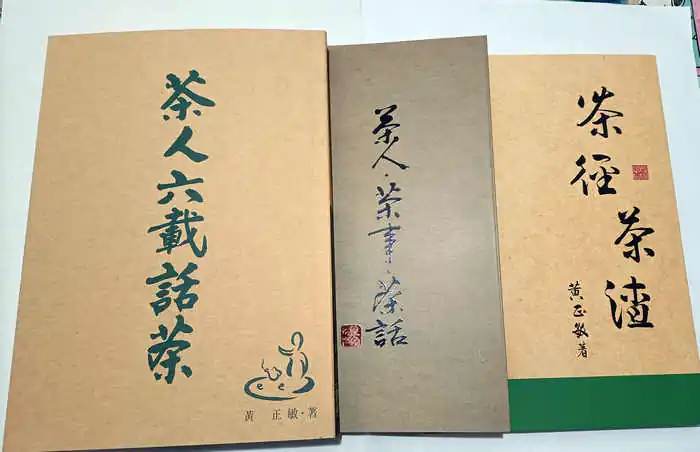 茶人六載話茶
黃 正敏·著
茶人·茶事·茶話
茶徑
茶渣
黄正敏著